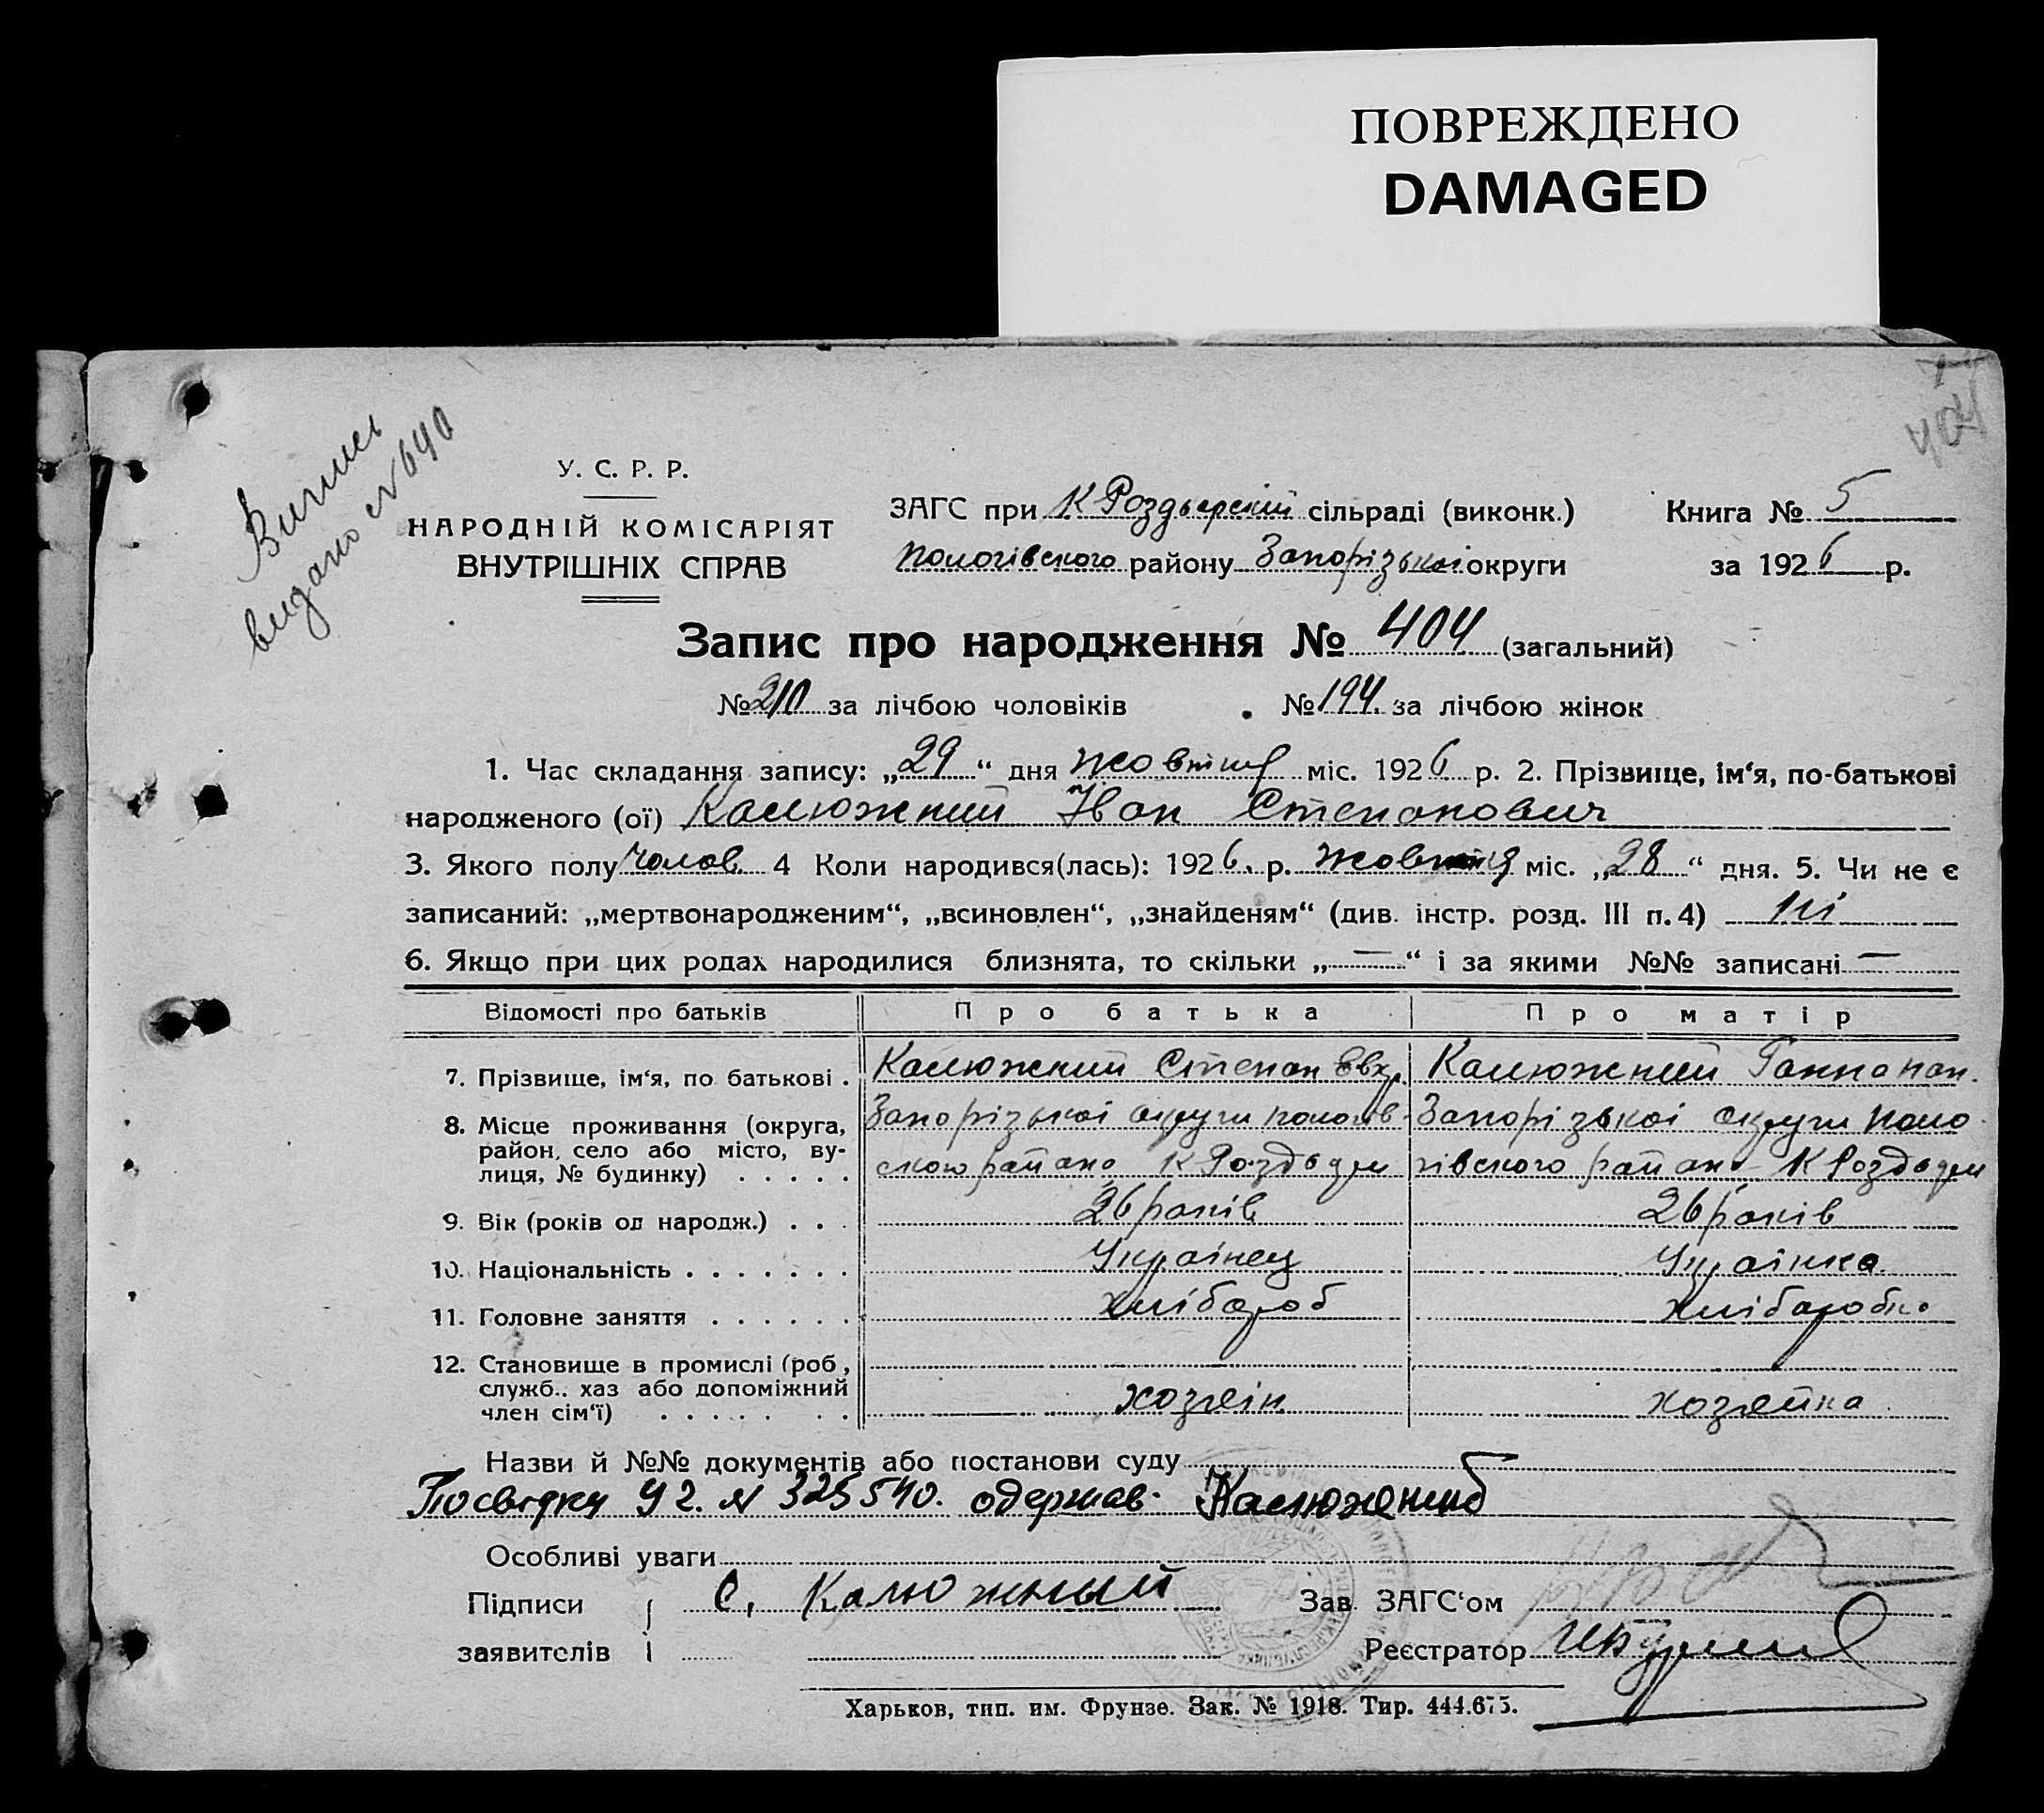 ПОВРЕЖДЕНО
DAMAGED
404
Випись
видано № 640
У. С. Р. Р.
НАРОДНІЙ КОМІСАРІЯТ
ВНУТРІШНІХ СПРАВ
ЗАГС при К Роздорскій сільраді (виконк.)
Пологівського району Запорізької округи
Книга № 5
за 1926 р.
Запис про народження № 404 (загальний)
№ 210 за лічбою чоловіків № 194 за лічбою жінок
1. Час складання запису: „29“ дня жовтня міс. 1926 р. 2. Прізвище, ім‘я, по-батькові
народженого (ої) Калюжний Іван Степанович
3. Якого полу чолов. 4 Коли народився(лась): 1926 р. жовтня міс. „28“ дня. 5. Чи не є
записаний: „мертвонародженим“, „всиновлен“, „знайденям“ (див. інстр. розд. III п. 4) ні
6. Якщо при цих родах народилися близнята, то скільки „—“ і за якими №№ записані —
Відомості про батьків Про батька Про матір
7. Прізвище, ім‘я, по батькові . Калюжний Степан Калюжний Ганна
8. Місце проживання (округа, Запорізькоі округи пологів- Запорізькоі округи поло
район, село або місто, ву- ського района К Розддри гівського района К Роздори
лиця, № будинку) . . . . .
9. Вік (років од народж.) . . . 26 років 26 років
10. Національність . . . . . . . Украінец Украінка
11. Головне заняття . . . . . . хлібороб хлібаробка
12. Становище в промислі (роб,
служб.. хаз або допоміжний хозяін хозяйка
член сім‘ї) . . . . . . .
Назви й №№ документів або постанови суду
Посвідку У2. № 325540. одержав. Калюжний
Особливі уваги
Підписи С, Калюжный Зав. ЗАГС‘ом
заявителів Реєстратор
Харьков, тип. им. Фрунзе. Зак. № 1918. Тир. 444.675.